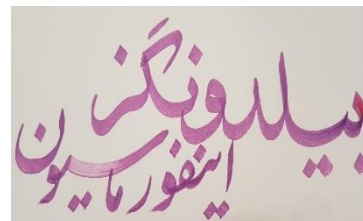 بیلدونگز
اینفورماسیون